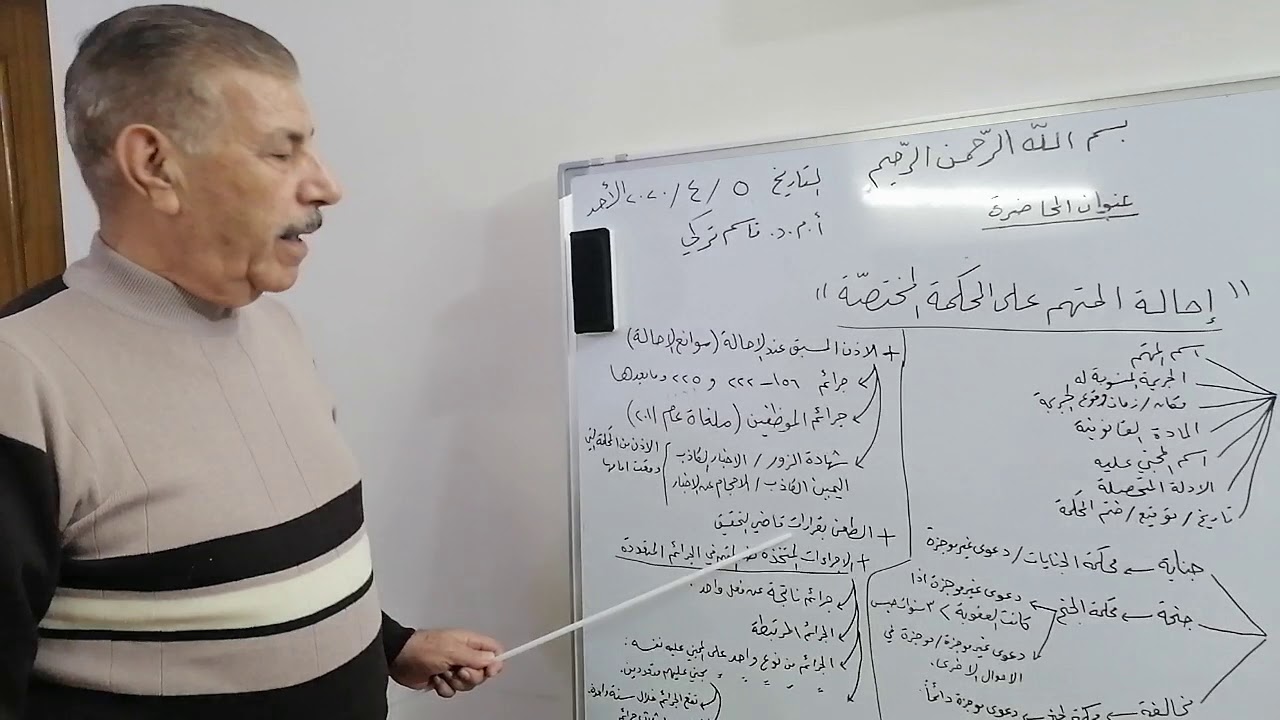 بسم اللّه الرّحمن الرّحيم
عنوان المحاضرة
التاريخ ٥ / ٤ / ٢٠٢٠ الأحد
أ.م.د. قاسم تركي
" إحالة المتهم على المحكمة المختصّة "
اسم المتهم
الجريمة المنسوبة له
مكان / زمان وقوع الجريمة
المادة القانونية
اسم المجني عليه
الادلة المتحصلة
تاريخ / توقيع / ختم المحكمة
جناية ← محكمة الجنايات / دعوى غير موجزة
جنحة ← محكمة الجنح
دعوى غير موجزة اذا
كانت العقوبة > ٣ سنوات حبس
دعوى غير موجزة / موجزة في
الاحوال الاخرى.
مخالفة ← محكمة الجنح ← دعوى موجزة دائماً.
+ الاذن المسبق عند الاحالة (موانع الاحالة)
جرائم ١٥٦ - ٢٢٢ و ٢٢٥ وما بعدها
جرائم الموظفين (ملغاة عام ٢٠١١)
شهادة الزور / الاخبار الكاذب
اليمين الكاذب / الاحجام عن الاخبار
الاذن من المحكمة التي
وقعت امامها
+ الطعن بقرارات قاضي التحقيق
+ الاجراءات المتخذة ضد المتهم في الجرائم المتعددة
جرائم ناتجة عن فعل واحد.
الجرائم المرتبطة
الجرائم من نوع واحد على المجني عليه نفسه.
مجني عليهم متعددين.
تقع الجرائم خلال سنة واحدة.
جرائم